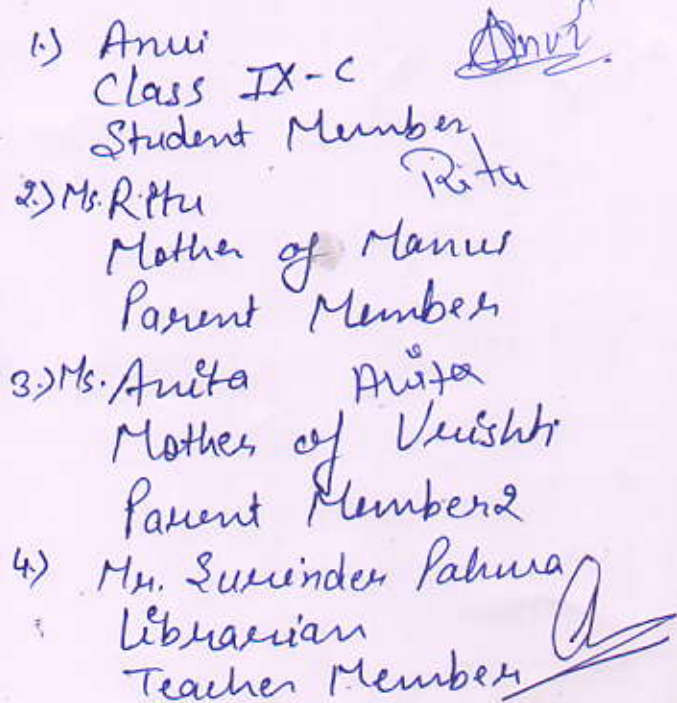 1.) Anvi Anvi
Class IX-C
Student Member
Ritu
2.) Ms. Ritu
Mother of Manus
Parent Member
3.) Ms. Anita Anita
Mother of Vrishti
Parent Member 2
4.) Mr. Surinder
Librarian
Teacher Member